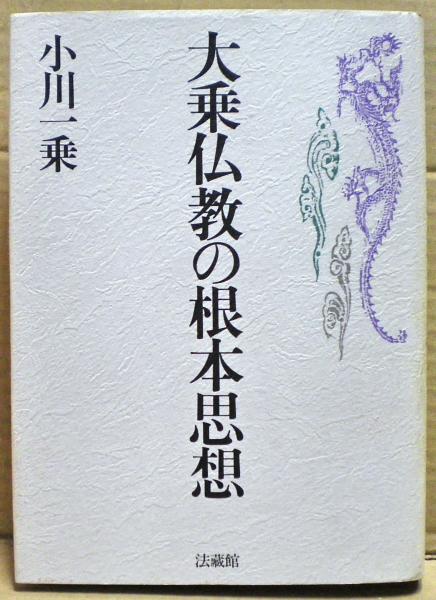 大乗仏教の根本思想
小川一乗
法藏館